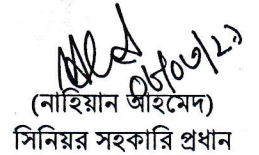 ০৮/০৩/২১
(নাহিয়ান আহমেদ)
সিনিয়র সহকারি প্রধান